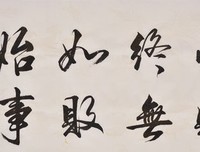 終如始
無敗事